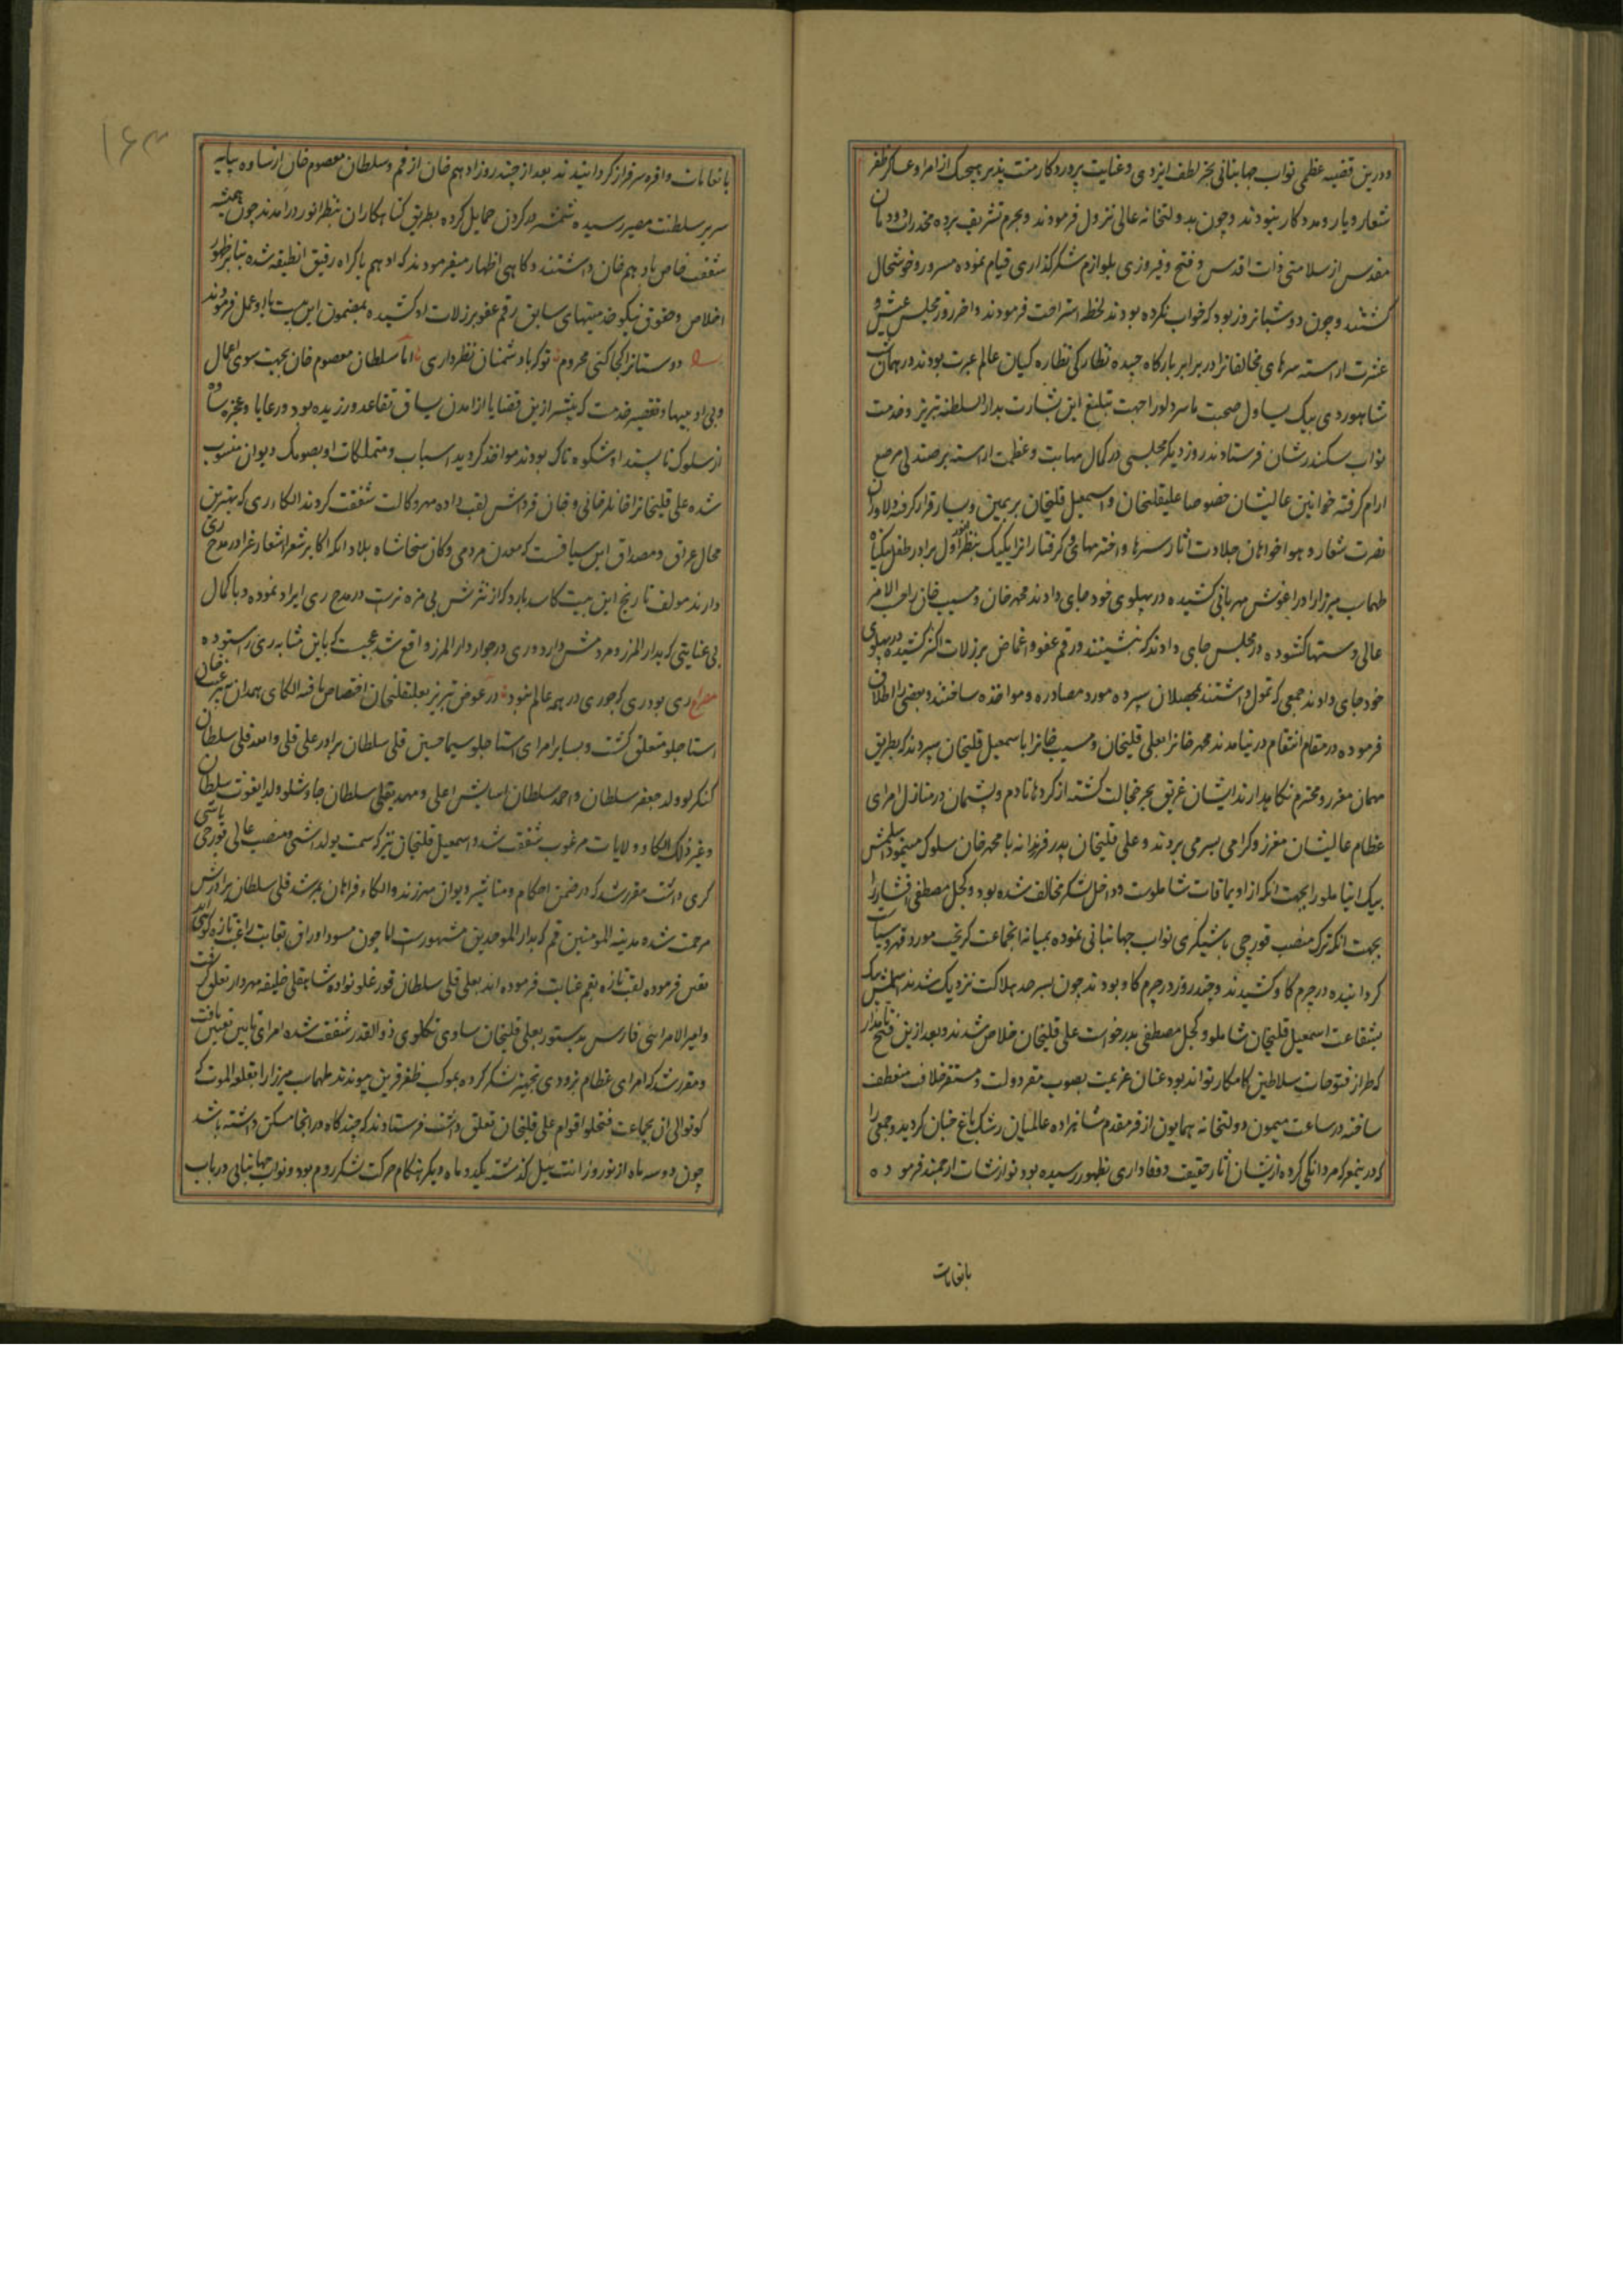 ودرین قضیه عظمی نواب جهانبانی بجز لطف ایزدی وعنایت پروردکار منت پذیر هیچیک از امرا وعساکر ظفر
شعار ویار ومددکار نبودند وچون بدولتخانه عالی نزول فرمودند وبحرم تشریف برده مخدرات دودمان
مقدس از سلامتی ذات اقدس وفتح وفیروزی بلوازم شکرکذاری قیام نموده مسرور وخوشحال
کشتند وچون دو شبانروز بود که خواب نکرده بودند لحظه استراحت فرمودند واخر روز مجلس عیش و
عشرت اراسته سرهای مخالفانرا در برابر بارکاه چیده نظارکی نظاره کیان عالم عبرت بودند در همان شب
شاهوردی بیک یساول صحبت با سر دلو را جهت تبلیغ این بشارت بدار السلطنه تبریز وخدمت
نواب سکندرشان فرستادند روز دیکر مجلسی در کمال مهابت وعظمت اراسته بر صندلی مرصع
ارام کرفته خوانین عالیشان خصوصا علیقلیخان واسمعیل قلیخان بر یمین ویسار قرار کرفته دلاوران
نصرت شعار وهواخواهان جلادت اثار سرها واخترمهای وکرفتارانرا یکیک بنظر انور اول برادر طفل بیکناه
طهماسب میرزا را در اغوش مهربانی کشیده در پهلوی خود جای دادند محمد خان ومسیب خان را حسب الامر
عالی دستها کشوده در مجلس جای دادند که نشینند ورقم عفو واغماض بر زلات اکثر کشیده در پهلوی
خود جای دادند جمعی که تمول داشتند بمحصلان سپرده مورد مصادره ومواخذه ساختند وبعضی را اطلاق
فرموده در مقام انتقام در نیامدند محمد خانرا بعلی قلیخان ومسیب خانرا باسمعیل قلیخان سپردند که بطریق
مهمان معزز ومحترم نکاه دارند ایشان غریق بحر خجالت کشته از کردها نادم وپشمان در منازل امرای
عظام عالیشان معزز وکرامی بسر می بردند وعلی قلیخان پدر فرزندانه با محمد خان سلوک مینمود سلمش
بیک ایناملو را بجهت انکه از اویماقات شاملوست وداخل لشکر مخالف شده بود وکچل مصطفی افشار را
بجهت انکه ترک منصب قورچی باشیکری نواب جهانبانی نموده بمیانه انجماعت کریخت مورد قهر وسیاست
کردانیده در چرم کاو کشیدند وچند روز در چرم کاو بودند چون بسرحد هلاکت نزدیک شدند سلمش بیک
بشفاعت اسمعیل قلیخان شاملو وکچل مصطفی بدرخواست علی قلیخان خلاص شدند وبعد ازین فتح نامدار
که طراز فتوحات سلاطین کامکار تواند بود عنان عزیمت بصوب مقر دولت ومستقر خلافت منعطف
ساخته در ساعت میمون دولتخانه همایون از فر مقدم شاهزاده عالمیان رشک باغ جنان کردید وجمعی را
که در ینمعرکه مردانکی کرده ازیشان اثار حقیقت ووفاداری بظهور رسیده بود نوازشات ارجمند فرموده
بانعامات
۱۶۳
بانعامات وافره سرافراز کردانیدند بعد از چند روز ادهم خان از قم وسلطان معصوم خان از ساوه بپایه
سریر سلطنت مصیر رسیده شمشیر در کردن حمایل کرده بطریق کناهکاران بنظر انور درامدند چون همیشه
شفقت خاص بادهم خان داشتند وکاهی اظهار میفرمودند که ادهم باکراه رفیق انطبقه شده بنابر ظهور
اخلاص وحقوق نیکو خدمتیهای سابق رقم عفو بر زلات او کشیده بمضمون این بیت با او عمل فرمودند
دوستانرا کجا کنی محروم تو که با دشمنان نظر داری اما سلطان معصوم خان بجهت سوی اعمال
وبی ادبیها وتقصیر خدمت که پیشتر ازین قضایا از امدن یساق تقاعد ورزیده بود ورعایا وعجزه ساوه
از سلوک ناپسند او شکوه ناک بودند مواخذ کردید اسباب ومتملکات او بصوبک دیوان منسوب
شده علی قلیخانرا خانلر خانی وخان قرداش لقب داده مهر وکالت شفقت کردند الکاء ری که بهترین
محال عراق ومصداق این سیاقست که معدن مردمی وکان سخا شاه بلاد انکه اکابر شعرا اشعار غرا در مدح ری
دارند مولف تاریخ این بیت کاسد بارد که از نثرش بی مزه ترست در مدح ری ایراد نموده وبا کمال
بی عنایتی که بدار المرز ومردمش دارد وری در جوار دار المرز واقع شد عجبست که باین مشابه ری را ستوده
مصراع ری بود ری که چو ری در همه عالم نبود در عوض تبریز بعلیقلیخان اختصاص یافته الکای همدان به پیر غیب خان
استاجلو متعلق کشت وبسایر امرای استاجلو سیما حسین قلی سلطان برادر علی قلی واسد قلی سلطان
کنکرلو ولد جعفر سلطان واحمد سلطان اسایش اعلی ومهدیقلی سلطان چاوشلو ولد یعقوب سلطان
وغیر ذلک الکاء وولایات مرغوب شفقت شد واسمعیل قلیخان نیز که سمت یولداشی ومنصب عالی قورچی باشی
کری داشت مقرر شد که در ضمن احکام ومناشیر دیوان مهر زند والکاء فراهان بمرشد قلی سلطان برادرش
مرحمت شده مدینه المومنین قم که بدار الموحدین مشهورست اما چون مسود اوراق بغایت راغب تازه کوئی اند
تعین فرموده لقب تازه بقم عنایت فرموده اند بعلی قلی سلطان قورغلو نواده شاهقلی خلیفه مهردار تعلق کرفت
وامیر الامرائی فارس بدستور بعلی قلیخان ساوی تکلوی ذوالقدر شفقت شده امرای تابین تعیین یافت
ومقرر شد که امرای عظام بزودی تجهیز لشکر کرده بموکب ظفر قرین پیوندند طهماسب میرزا را بقلعه الموت که
کوتوالی ان بجماعت فتحلو اقوام علی قلیخان تعلق داشت فرستادند که چندکاه در انجا مسکن داشته باشد
چون دو سه ماه از نوروز ایت ییل کذشته یکدو ماه دیکر هنکام حرکت لشکر روم بود ونواب جهانبانی در باب